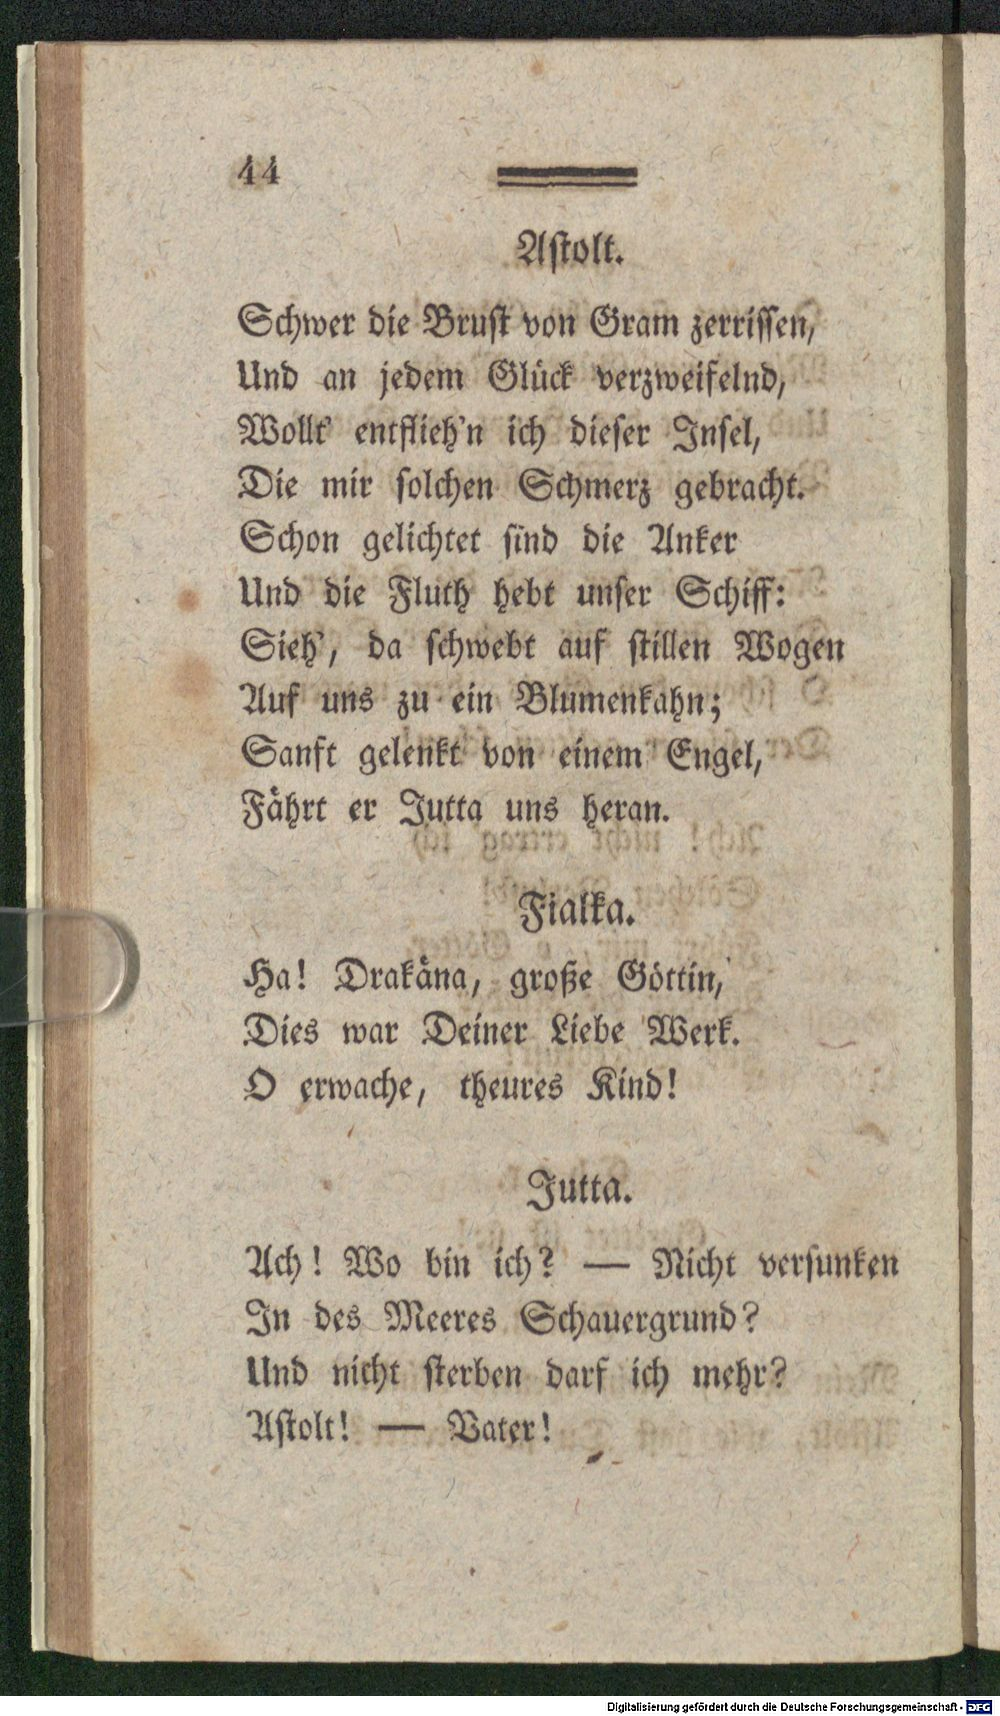 44
Astolt.
Schwer die Brust von Gram zerrissen,
Und an jedem Glück verzweifelnd,
Wollt' entflieh'n ich dieser Insel,
Die mir solchen Schmerz gebracht.
Schon gelichtet sind die Anker
Und die Fluth hebt unser Schiff:
Sieh', da schwebt auf stillen Wogen
Auf uns zu ein Blumenkahn;
Sanft gelenkt von einem Engel,
Fährt er Jutta uns heran.
Fialka.
Ha! Drakäna, große Göttin,
Dies war Deiner Liebe Werk.
O erwache, theures Kind!
Jutta.
Ach! Wo bin ich? — Nicht versunken
In des Meeres Schauergrund?
Und nicht sterben darf ich mehr?
Astolt! — Vater!
Digitalisierung gefördert durch die Deutsche Forschungsgemeinschaft - DFG